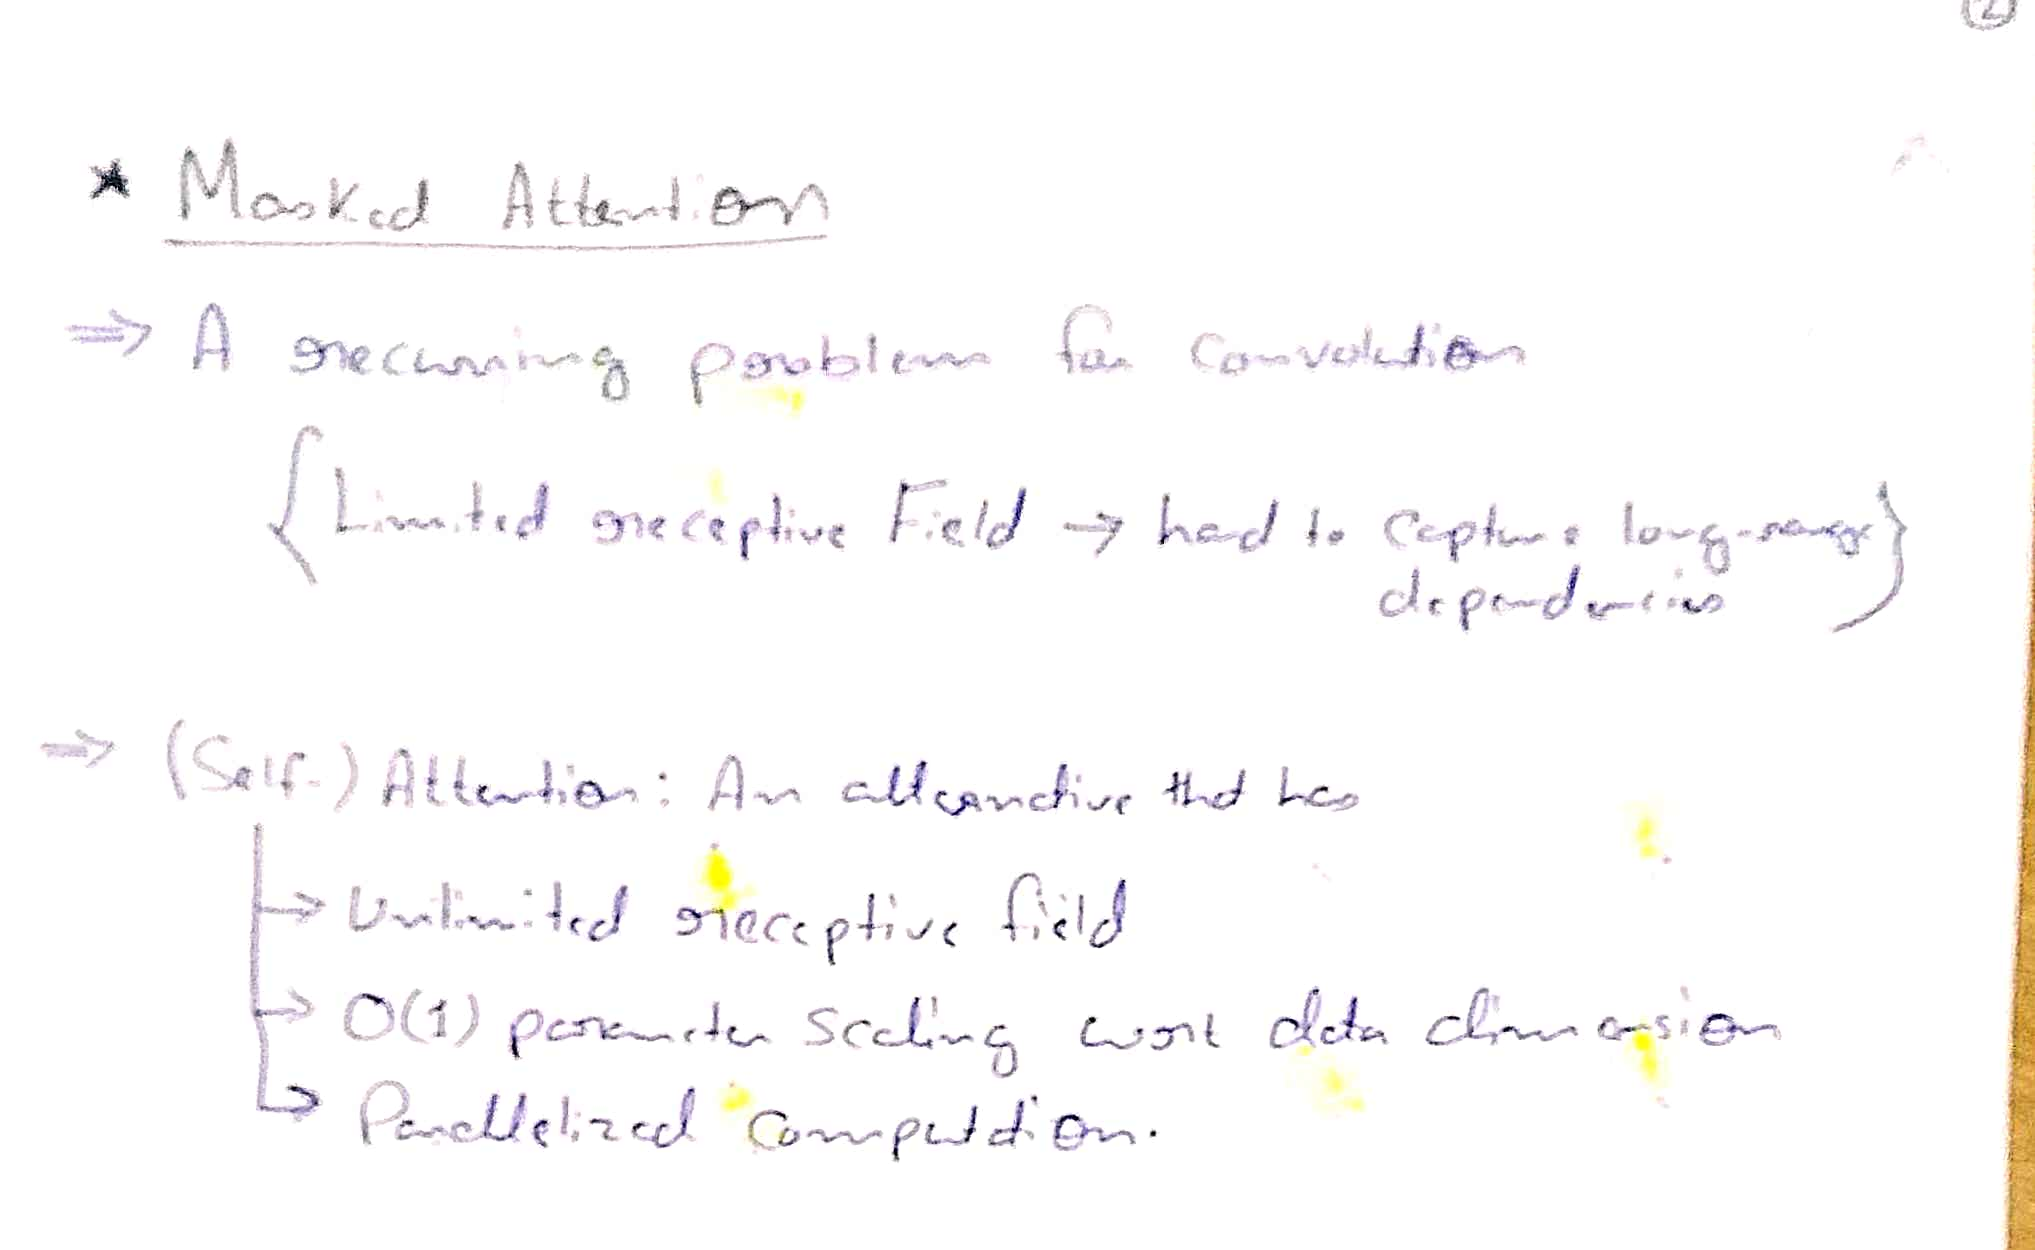 ②
* Masked Attention
⇒ A recurring problem for convolution
{ Limited receptive Field → hard to capture long-range }
dependencies
⇒ (Self-) Attention: An alternative that has
→ Unlimited receptive field
→ O(1) parameter scaling wrt data dimension
→ Parallelized computation.